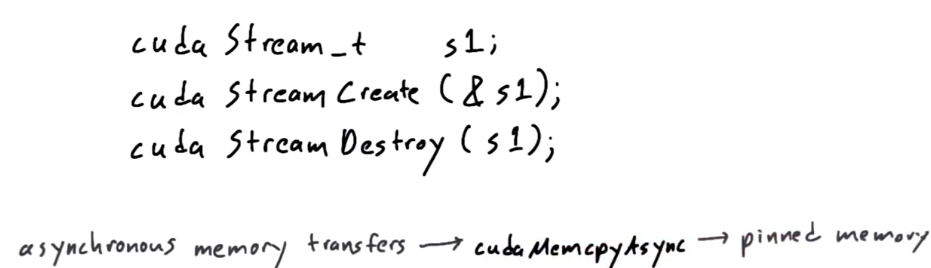 cuda Stream_t s1;
cuda Stream Create (& s1);
cuda Stream Destroy (s1);
asynchronous memory transfers → cudaMemcpyAsync → pinned memory